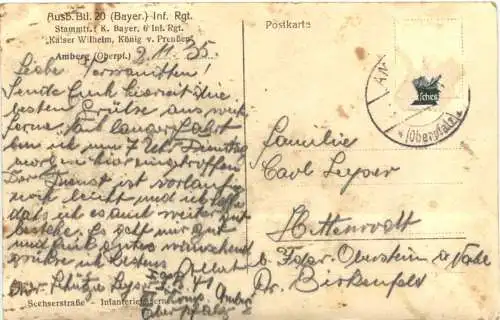 Ausb. Btl. 20 (Bayer.) Inf. Rgt.
Stammtr.: K. Bayer. 6 Inf. Rgt.
"Kaiser Wilhelm, König v. Preußen"
Amberg (Oberpf.) 9.11.35.
Liebe Verwandten!
Sende Euch hiermit die
besten Grüße aus weiter
Ferne. Nach langer Fahrt
bin ich um 7 Uhr Dienstag
morgen hier eingetroffen
Der Dienst ist vorläufig
noch leicht und ich hoffe
daß ich es auch weiter gut
bestehe. Es geht mir gut
und Euch gutes wünschend
grüße ich bestens
Schütze Leyser
Amberg
Oberpfalz
Sechserstraße – Infanteriekaserne
Postkarte
(Oberpfalz)
Familie
Carl Leyser
Hettenrodt
b. Idar-Oberstein a. Nahe
Kr. Birkenfeld